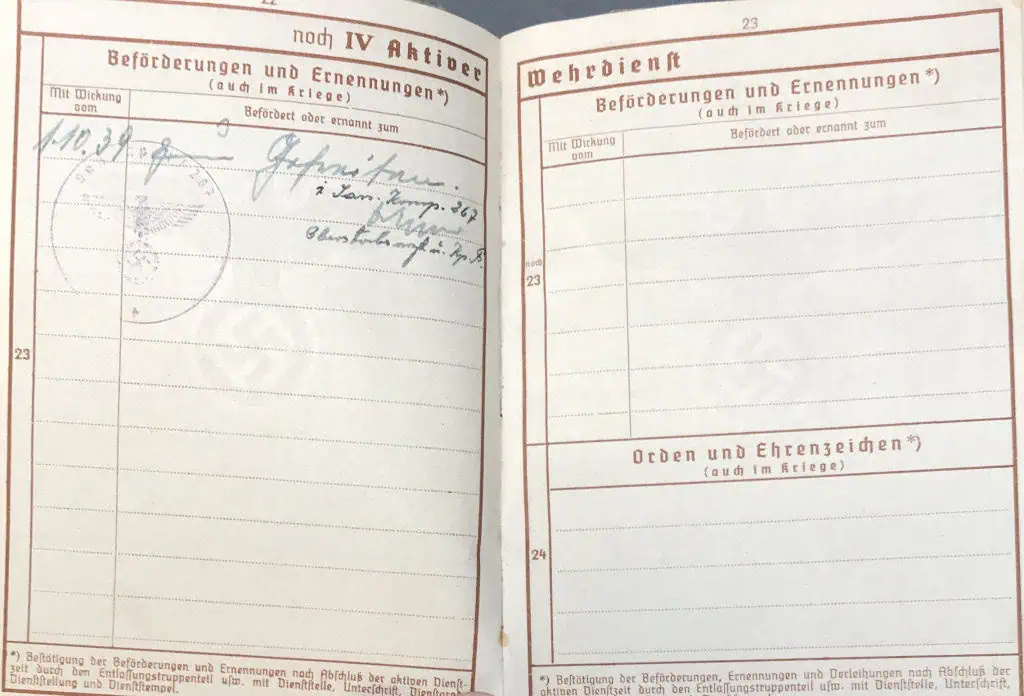 22
noch IV Aktiver
Beförderungen und Ernennungen*)
(auch im Kriege)
Mit Wirkung
vom
Befördert oder ernannt zum
1.10.39 zum Gefreiten.
San. Komp. 267
Oberstabsarzt u.
23
*) Bestätigung der Beförderungen und Ernennungen nach Abschluß der aktiven Dienst-
zeit durch den Entlassungstruppenteil usw. mit Dienststelle, Unterschrift, Dienstgrad
Dienststellung und Dienststempel.
23
Wehrdienst
Beförderungen und Ernennungen*)
(auch im Kriege)
Mit Wirkung
vom
Befördert oder ernannt zum
noch
23
Orden und Ehrenzeichen*)
(auch im Kriege)
24
*) Bestätigung der Beförderungen, Ernennungen und Verleihungen nach Abschluß der
aktiven Dienstzeit durch den Entlassungstruppenteil usw. mit Dienststelle, Unterschrift,